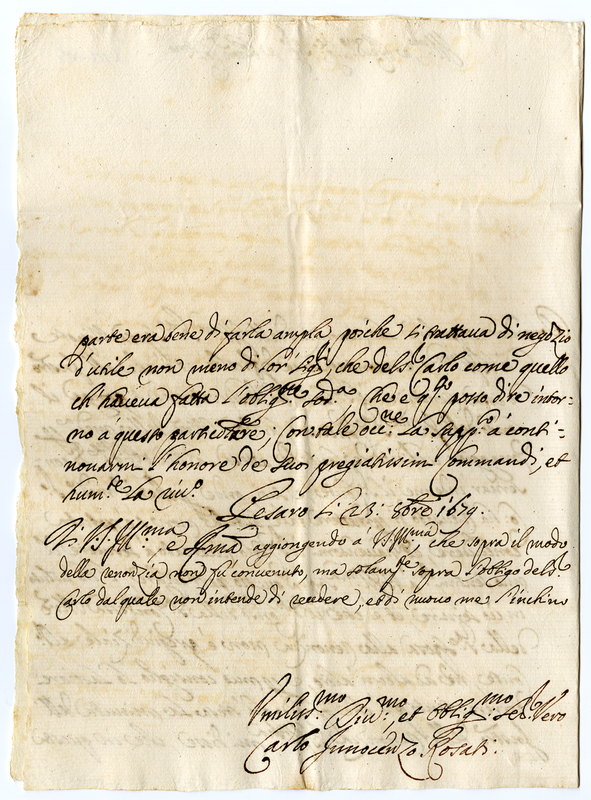 parte era bene di farla ampla, poiche si trattava di negozio
d'utile non meno di lor' Sig.ri, che del S.r Carlo come quello
ch'haveva fatta l'oblig.ne sod.a Che è q.to posso dire intor=
no à questo particolare; Con tale occ.ne La supp.co à conti=
novarmi l'honore de suoi pregiatissimi Commandi, et
hum.te La riv.o
Pesaro li 23: 9bre 1679.
Di V.S. Ill.ma, e R.ma aggiongendo à V.S. Ill.ma, che sopra il modo
della renonzia non fù convenuto, ma solam.te sopra l'obligo del S.r
Carlo dal quale non intende di recedere, et di nuovo me l'inchino
Umiliss.mo Div.mo et Oblig.mo Ser.r Vero
Carlo Innocenzo Rosati